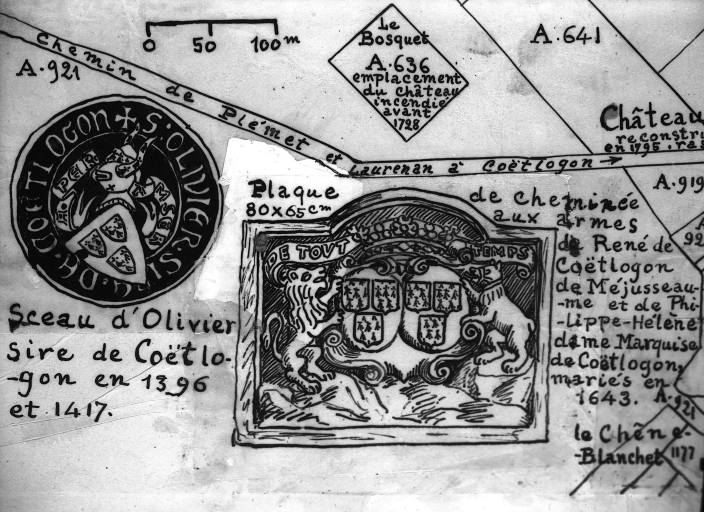 0 50 100 m
Le
Bosquet
A.636
emplacement
du château
incendié
avant
1728
A.641
A.921
Chemin de Plémet et Laurenan à Coëtlogon
Château
reconstru
en 1795. res
A.919
92
✝ S: OLIVIER: SIRE: DE: COËTLOGON
A PEINE
Sceau d'Olivier
Sire de Coëtlo-
-gon en 1396
et 1417.
Plaque
80x65cm
de cheminée
aux armes
de René de
Coëtlogon
de Méjusseau-
-me et de Phi-
-lippe-Hélène
dame Marquise
de Coëtlogon,
mariés en
1643.
DE TOUT TEMPS
A.921
le Chêne-
-Blanchet
1177